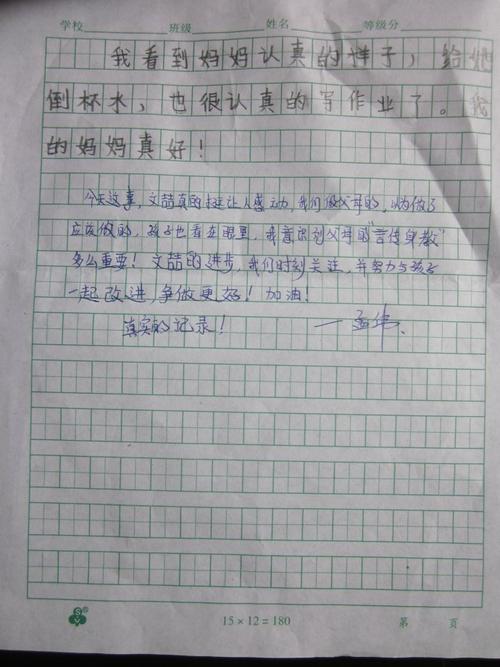 学校 班级 姓名 等级分
我看到妈妈认真的样子，给她
倒杯水，也很认真的写作业了。我
的妈妈真好！
今天这事，文喆真的挺让人感动，我们做父母的，认为做了
应该做的，孩子也看在眼里，我意识到父母的“言传身教”
多么重要！文喆的进步，我们时刻关注，并努力与孩子
一起改进，争做更好！加油！
真实的记录！ —孟伟.
15×12=180 第 页